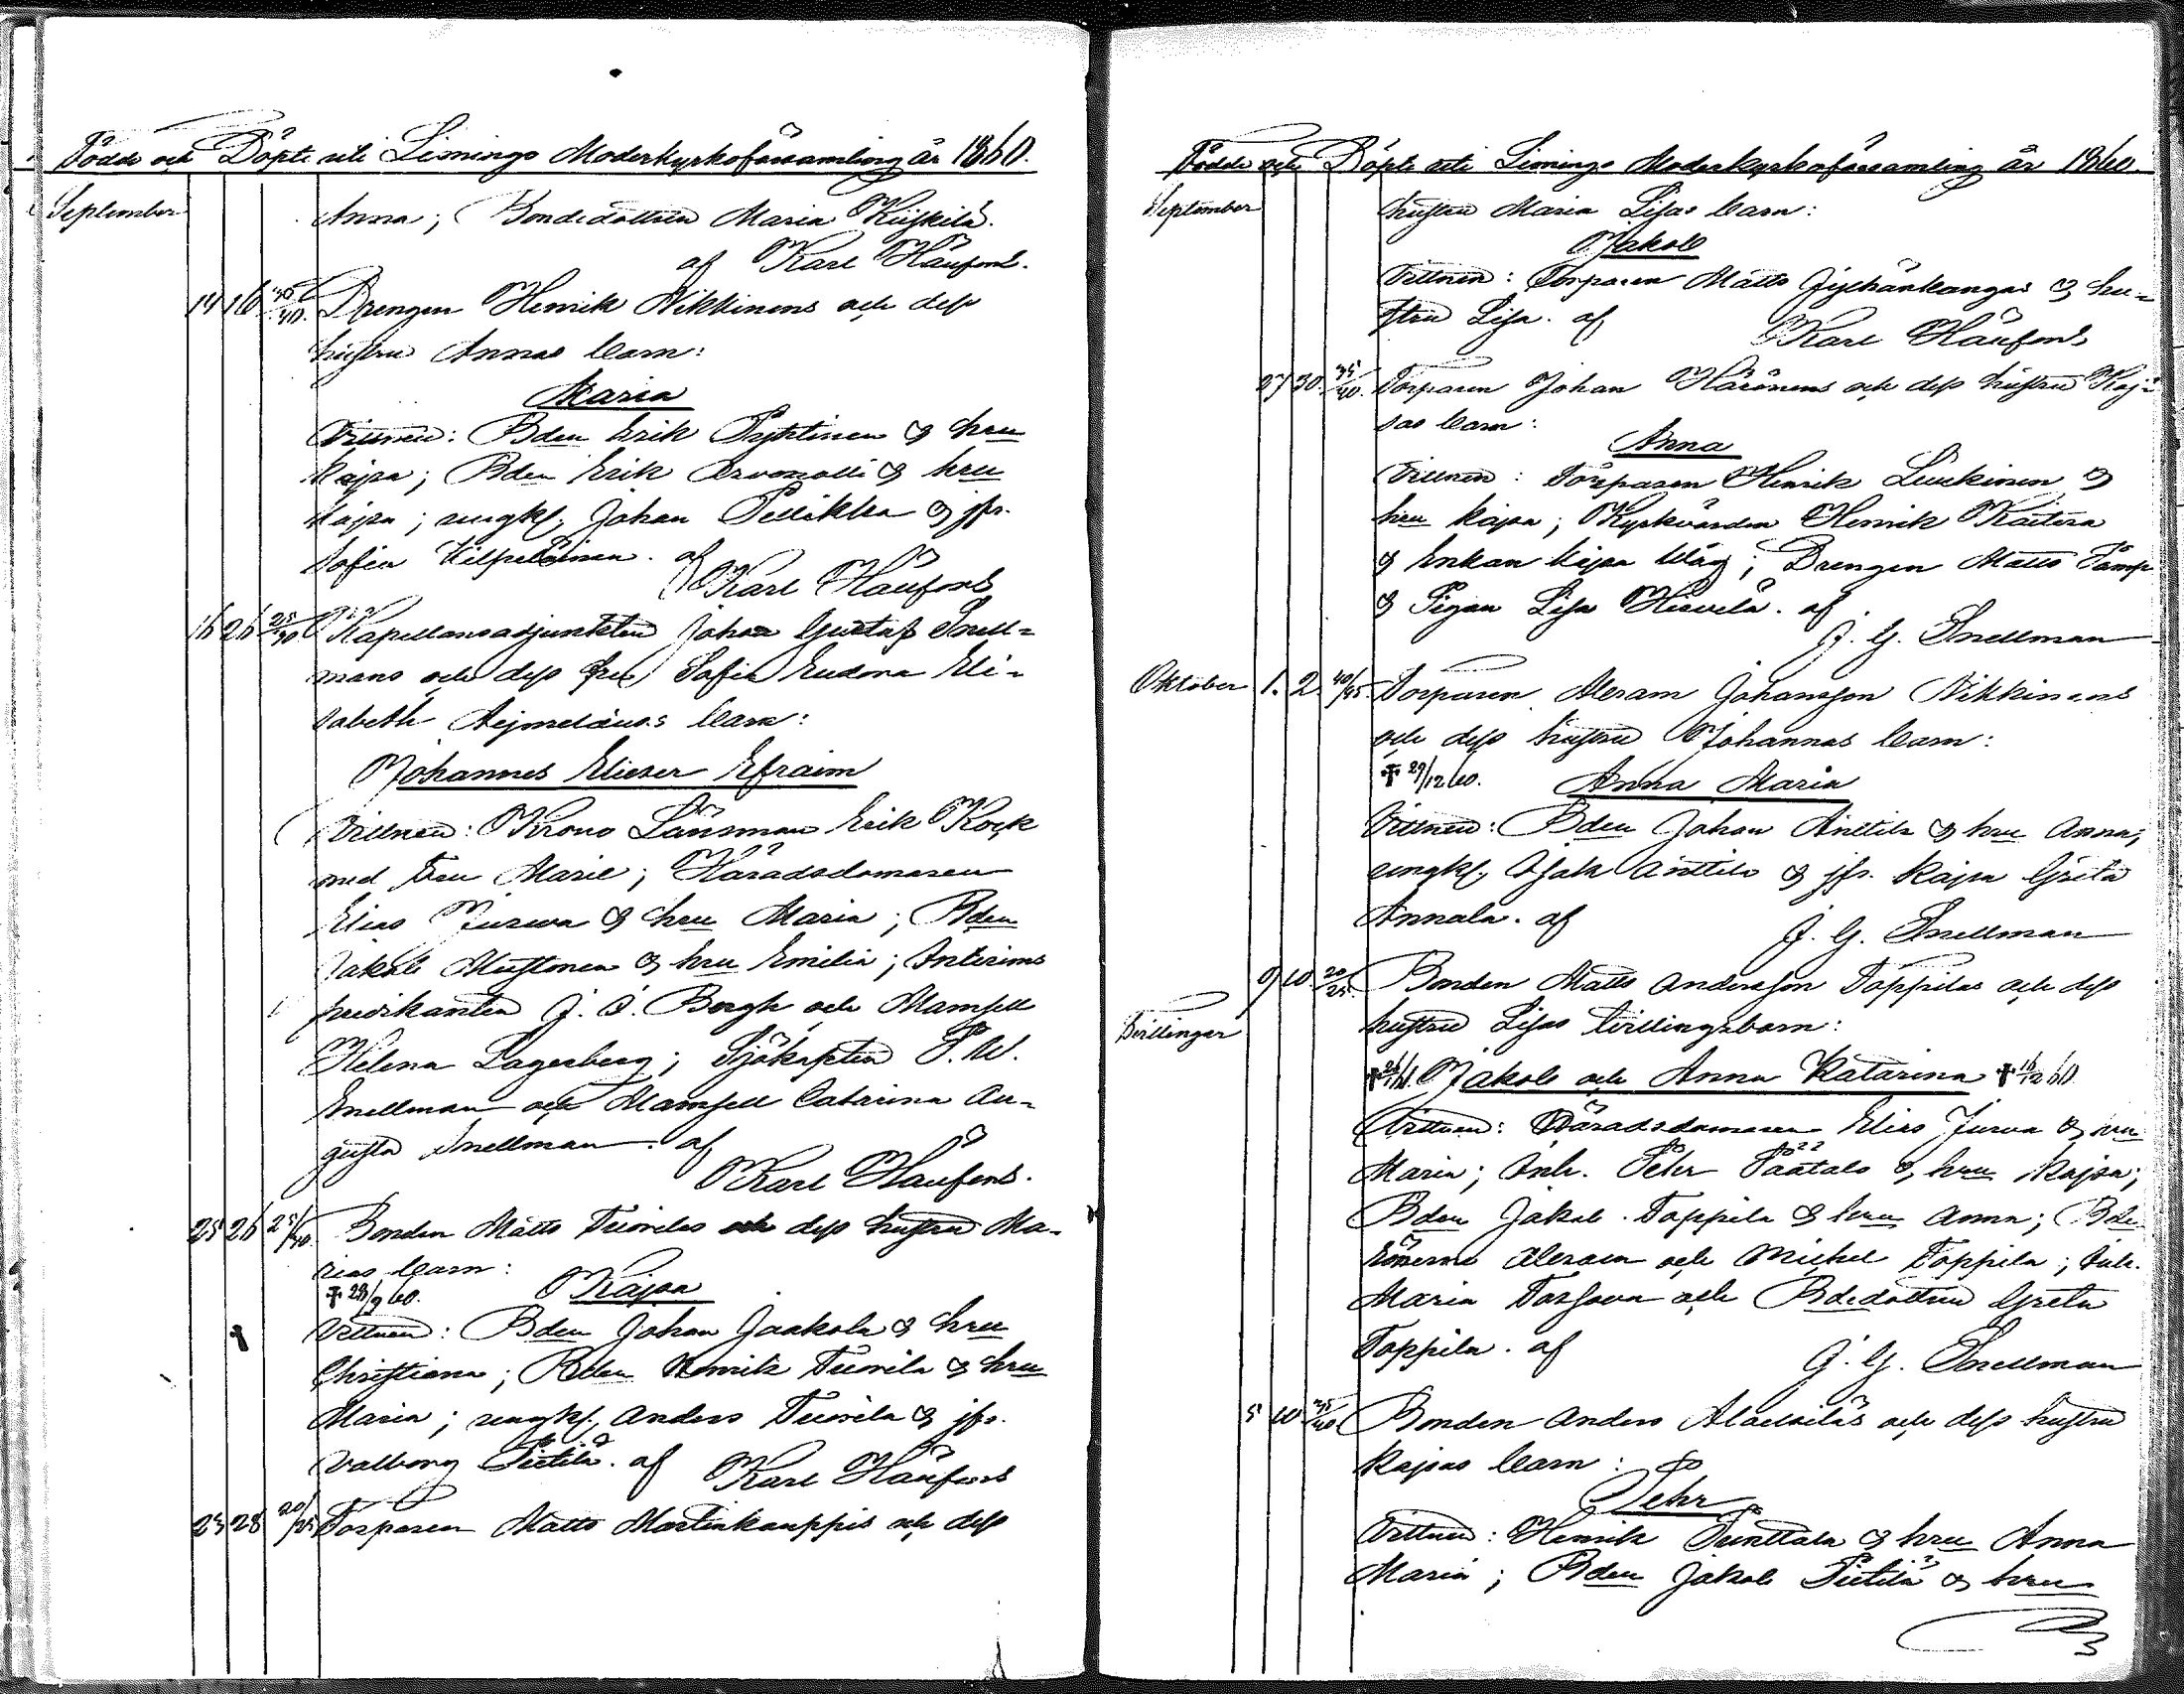 Födde och Döpte uti Limingo Moderkyrkoförsamling år 1860.
September
Anna; Bondedottren Maria Kuiskila.
af Karl Häufons.
14 16 35/40. Drengen Henrik Nikkinens och dess
hustru Annas barn:
Maria
Vittnen: Bden Erik Pyhtinen & hru
Kajsa; Bden Erik & hru
Kajsa; ungk. Johan & jfr.
Sofia Kilpeläinen. af
Karl Häufons
16 26 25/30 Kapellansadjunkten Johan Gustaf Snell-
mans och dess fru Sofia Eudora Eli-
sabeth barn:
Johannes Elieser Efraim
Vittnen: Krono Länsman Erik Kock
med fru Marie; Häradsdomaren
Elias Jurva & hru Maria; Bden
Jakob Mustonen & hru Emilia; Interims
predikanten J. Bergh och Mamsell
Helena Lagerberg; Sjökapten
Snellman och Mamsell Catarina Au-
gusta Snellman. af
Karl Häufons.
25 26 Bonden Matts Tuovilas och dess hustru Ma-
rias barn:
† 29/9 60. Kajsa
Vittnen: Bden Johan Jaakola & hru
Christiana; Bden Henrik Tuovila & hru
Maria; ungk. Anders Tuovila & jfr.
Valborg Pietilä. af Karl Häufons
23 28 20/25 Torparen Matts Martinkauppis och dess
Födde och Döpte uti Limingo Moderkyrkoförsamling år 1860.
September
hustru Maria Lisas barn:
Jakob
Vittnen: Torparen Matts & hu-
stru Lisa. af Karl Häufons
27 30. 35/40. Torparen Johan Härönens och dess hustru Kaj-
sas barn:
Anna
Vittnen: Torparen Henrik Liukinen &
hru Kajsa; Kyrkvärden Henrik Kaitera
& Enkan Kajsa; Drengen Matts
& Pigan Lisa Hirvelä. af
J. G. Snellman
Oktober 1. 2. 40/45. Torparen Abram Johansson Nikkinens
och dess hustru Johannas barn:
† 29/12 60. Anna Maria
Vittnen: Bden Johan Anttila & hru Anna;
ungk. Isak Anttila & jfr. Kajsa Greta
Annala. af J. G. Snellman
9 10 20/25. Bonden Matts Andersson Toppilas och dess
Tvillingar
hustru Lisas tvillingsbarn:
Jakob och Anna Katarina † 16/12 60
Vittnen: Häradsdomaren Elias Jurva & hru
Maria; Inh. Pehr Paatalo & hru Kajsa;
Bden Jakob Toppila & hru Anna; Bde-
sönerne Abram och Michel Toppila; Inh.
Maria och Bdedottren Greta
Toppila. af J. G. Snellman
5 10 35/40 Bonden Anders Alaetsiläs och dess hustru
Kajsas barn:
Pehr
Vittnen: Henrik & hru Anna
Maria; Bden Jakob Pietilä & hru